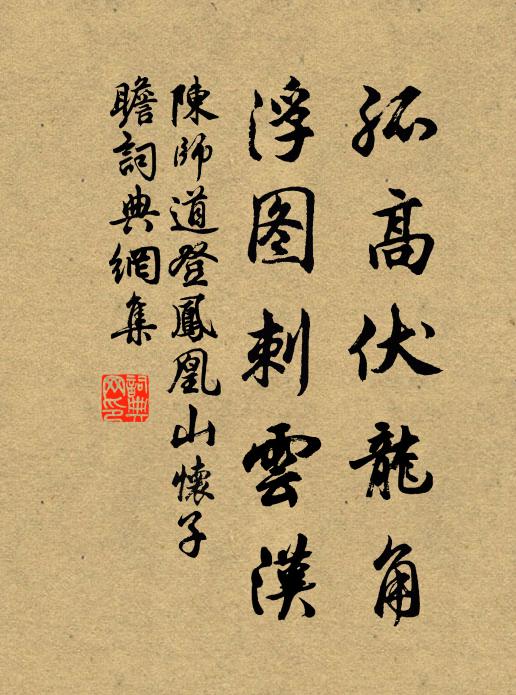 孤高伏龍角
浮图刺雲漢
陳師道登鳳凰山懷子
瞻詞典網集
詞典
网印